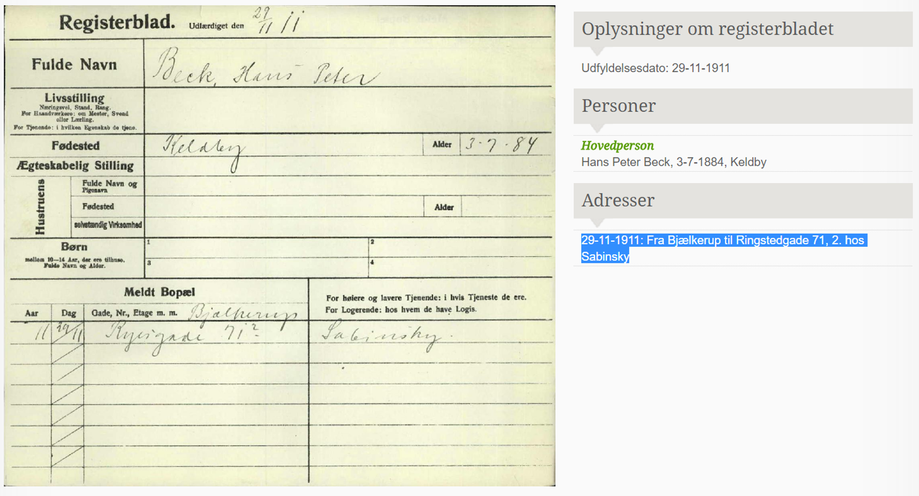 Registerblad. Udfærdiget den 29/11 11
Fulde Navn Beck, Hans Peter
Livsstilling
Næringsvei, Stand, Rang.
For Haandværkere: om Mester, Svend
eller Lærling.
For Tjenende: i hvilken Egenskab de tjene.
Fødested Keldby Alder 3-7-84
Ægteskabelig Stilling
Hustruens
Fulde Navn og
Pigenavn
Fødested Alder
selvstændig Virksomhed
Børn
mellem 10-14 Aar, der ere tilhuse.
Fulde Navn og Alder.
1 2
3 4
Meldt Bopæl
For højere og lavere Tjenende: i hvis Tjeneste de ere.
For Logerende: hos hvem de have Logis.
Aar Dag Gade, Nr., Etage m. m. Bjælkerup
11 29/11 71² Sabinsky.
Oplysninger om registerbladet
Udfyldelsesdato: 29-11-1911
Personer
Hovedperson
Hans Peter Beck, 3-7-1884, Keldby
Adresser
29-11-1911: Fra Bjælkerup til Ringstedgade 71, 2. hos
Sabinsky